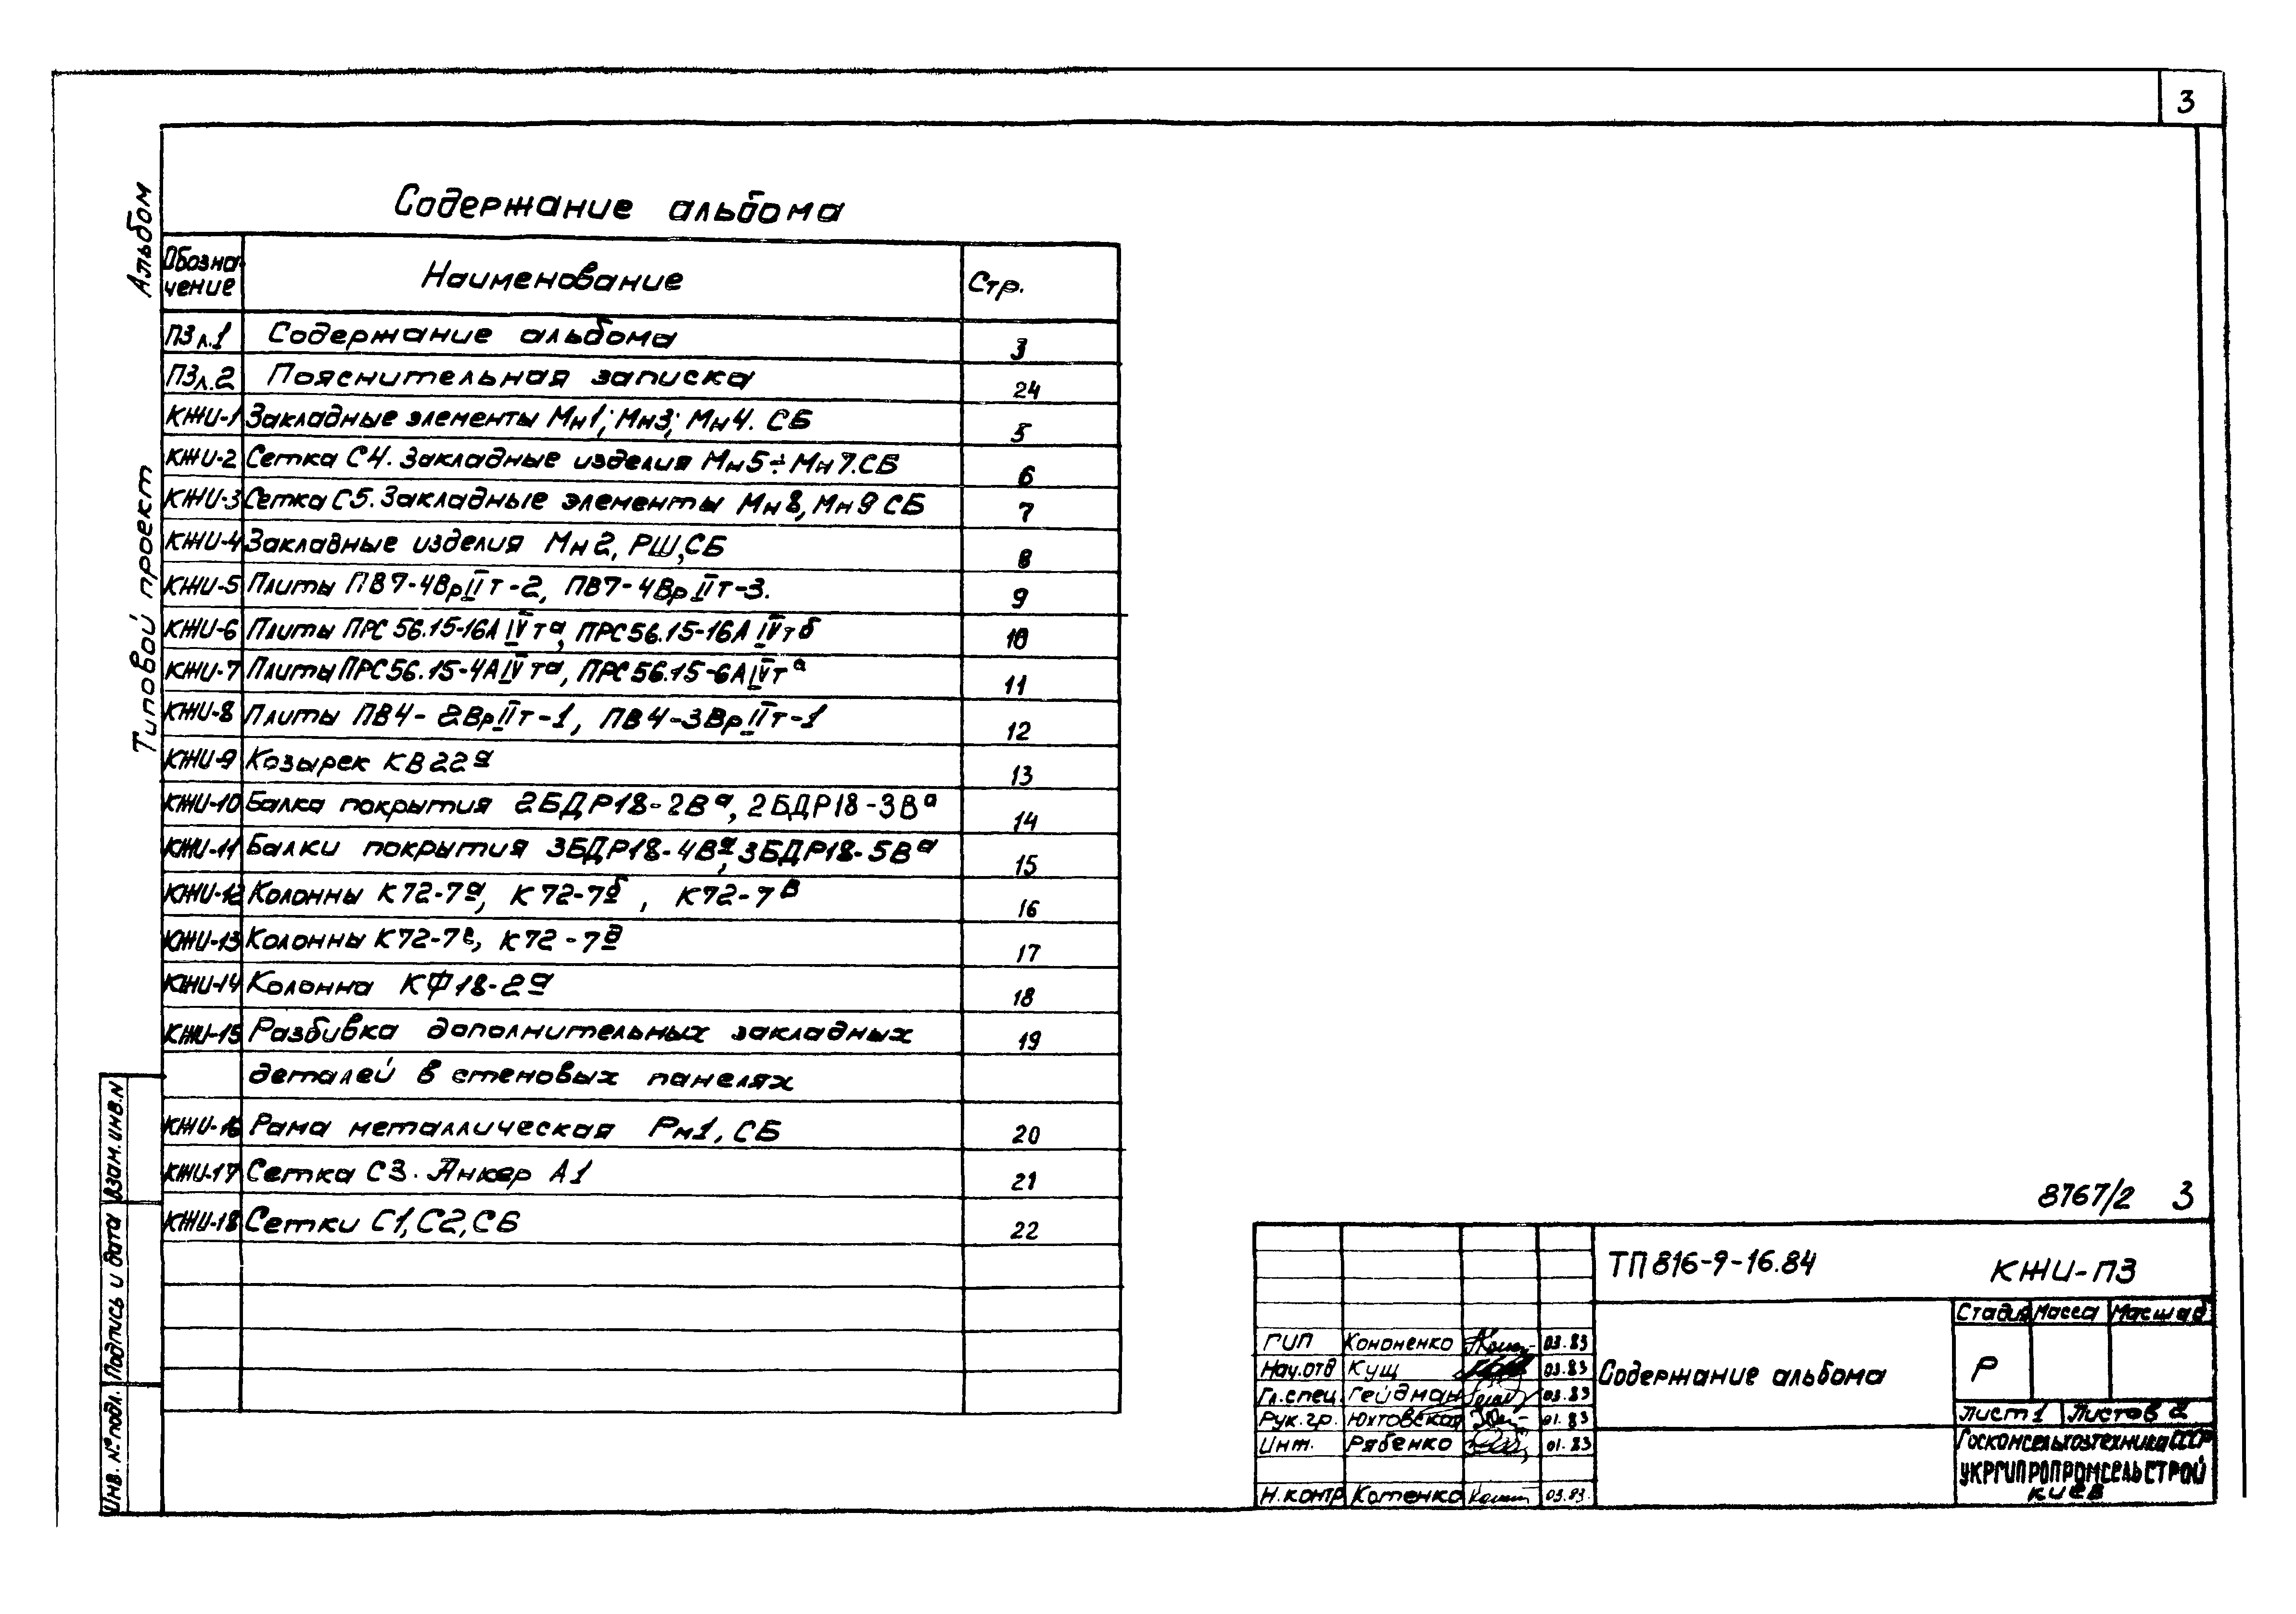 3
Альбом
Типовой проект
Содержание альбома
Обозна-
чение
Наименование
Стр.
ПЗ л.1 Содержание альбома 3
ПЗ л.2 Пояснительная записка 24
КЖИ-1 Закладные элементы Мн1; Мн3; Мн4. СБ 5
КЖИ-2 Сетка С4. Закладные изделия Мн5÷Мн7.СБ 6
КЖИ-3 Сетка С5. Закладные элементы Мн8, Мн9 СБ 7
КЖИ-4 Закладные изделия Мн2, РШ, СБ 8
КЖИ-5 Плиты ПВ7-4ВрIIт-2, ПВ7-4ВрIIт-3. 9
КЖИ-6 Плиты ПРС56.15-16АIVта, ПРС56.15-16АIVтб 10
КЖИ-7 Плиты ПРС56.15-4АIVта, ПРС56.15-6АIVта 11
КЖИ-8 Плиты ПВ4-2ВрIIт-1, ПВ4-3ВрIIт-1 12
КЖИ-9 Козырек КВ22а 13
КЖИ-10 Балка покрытия 2БДР18-2Ва, 2БДР18-3Ва 14
КЖИ-11 Балки покрытия 3БДР18-4Ва, 3БДР18-5Ва 15
КЖИ-12 Колонны К72-7а, К72-7б, К72-7в 16
КЖИ-13 Колонны К72-7г, К72-7д 17
КЖИ-14 Колонна КФ18-2а 18
КЖИ-15 Разбивка дополнительных закладных 19
деталей в стеновых панелях
КЖИ-16 Рама металлическая Рм1, СБ 20
КЖИ-17 Сетка С3. Анкер А1 21
КЖИ-18 Сетки С1, С2, СБ 22
Взам.инв.N
Подпись и дата
Инв. №подл.
8767/2 3
ТП 816-9-16.84 КЖИ-ПЗ
Стадия Масса Масштаб
Р
ГИП Кононенко 03.83
Нач.отд Кущ 03.83
Гл.спец. Гейдман 03.83
Рук.гр. Юхтовская 01.83
Инж. Рябенко 01.83
Н.контр Котенко 03.83.
Содержание альбома
Лист 1 Листов 2
Госкомсельхозтехника СССР
УКРГИПРОПРОМСЕЛЬСТРОЙ
КИЕВ